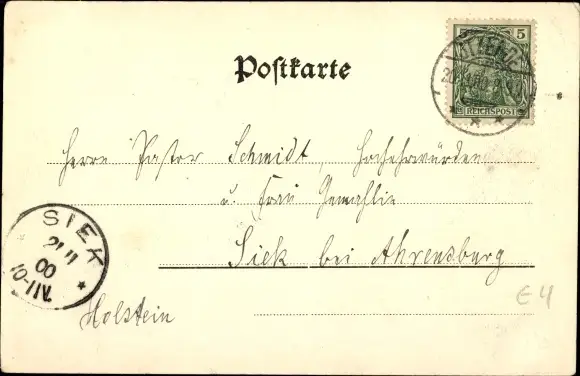 Postkarte
5
REICHSPOST
Herrn Pastor Schmidt, Hochehrwürden
u. Frau Gemahlin
Siek bei Ahrensburg
Holstein
SIEK
21 11
00
10-11V.
E4